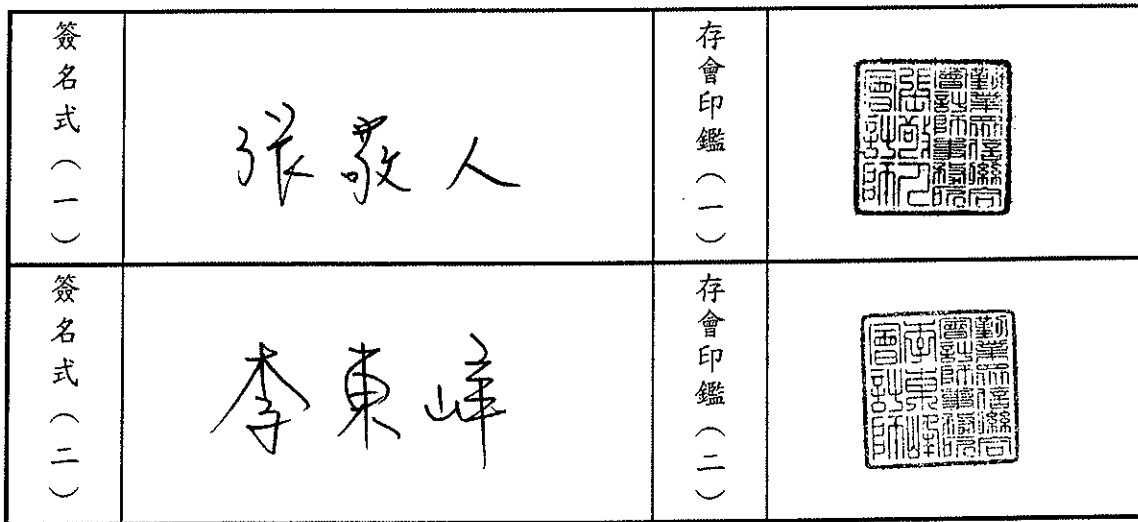 簽名式（一）
張敬人
存會印鑑（一）
勤業眾信聯合
會計師事務所
張敬人
會計師
簽名式（二）
李東峰
存會印鑑（二）
勤業眾信聯合
會計師事務所
李東峰
會計師